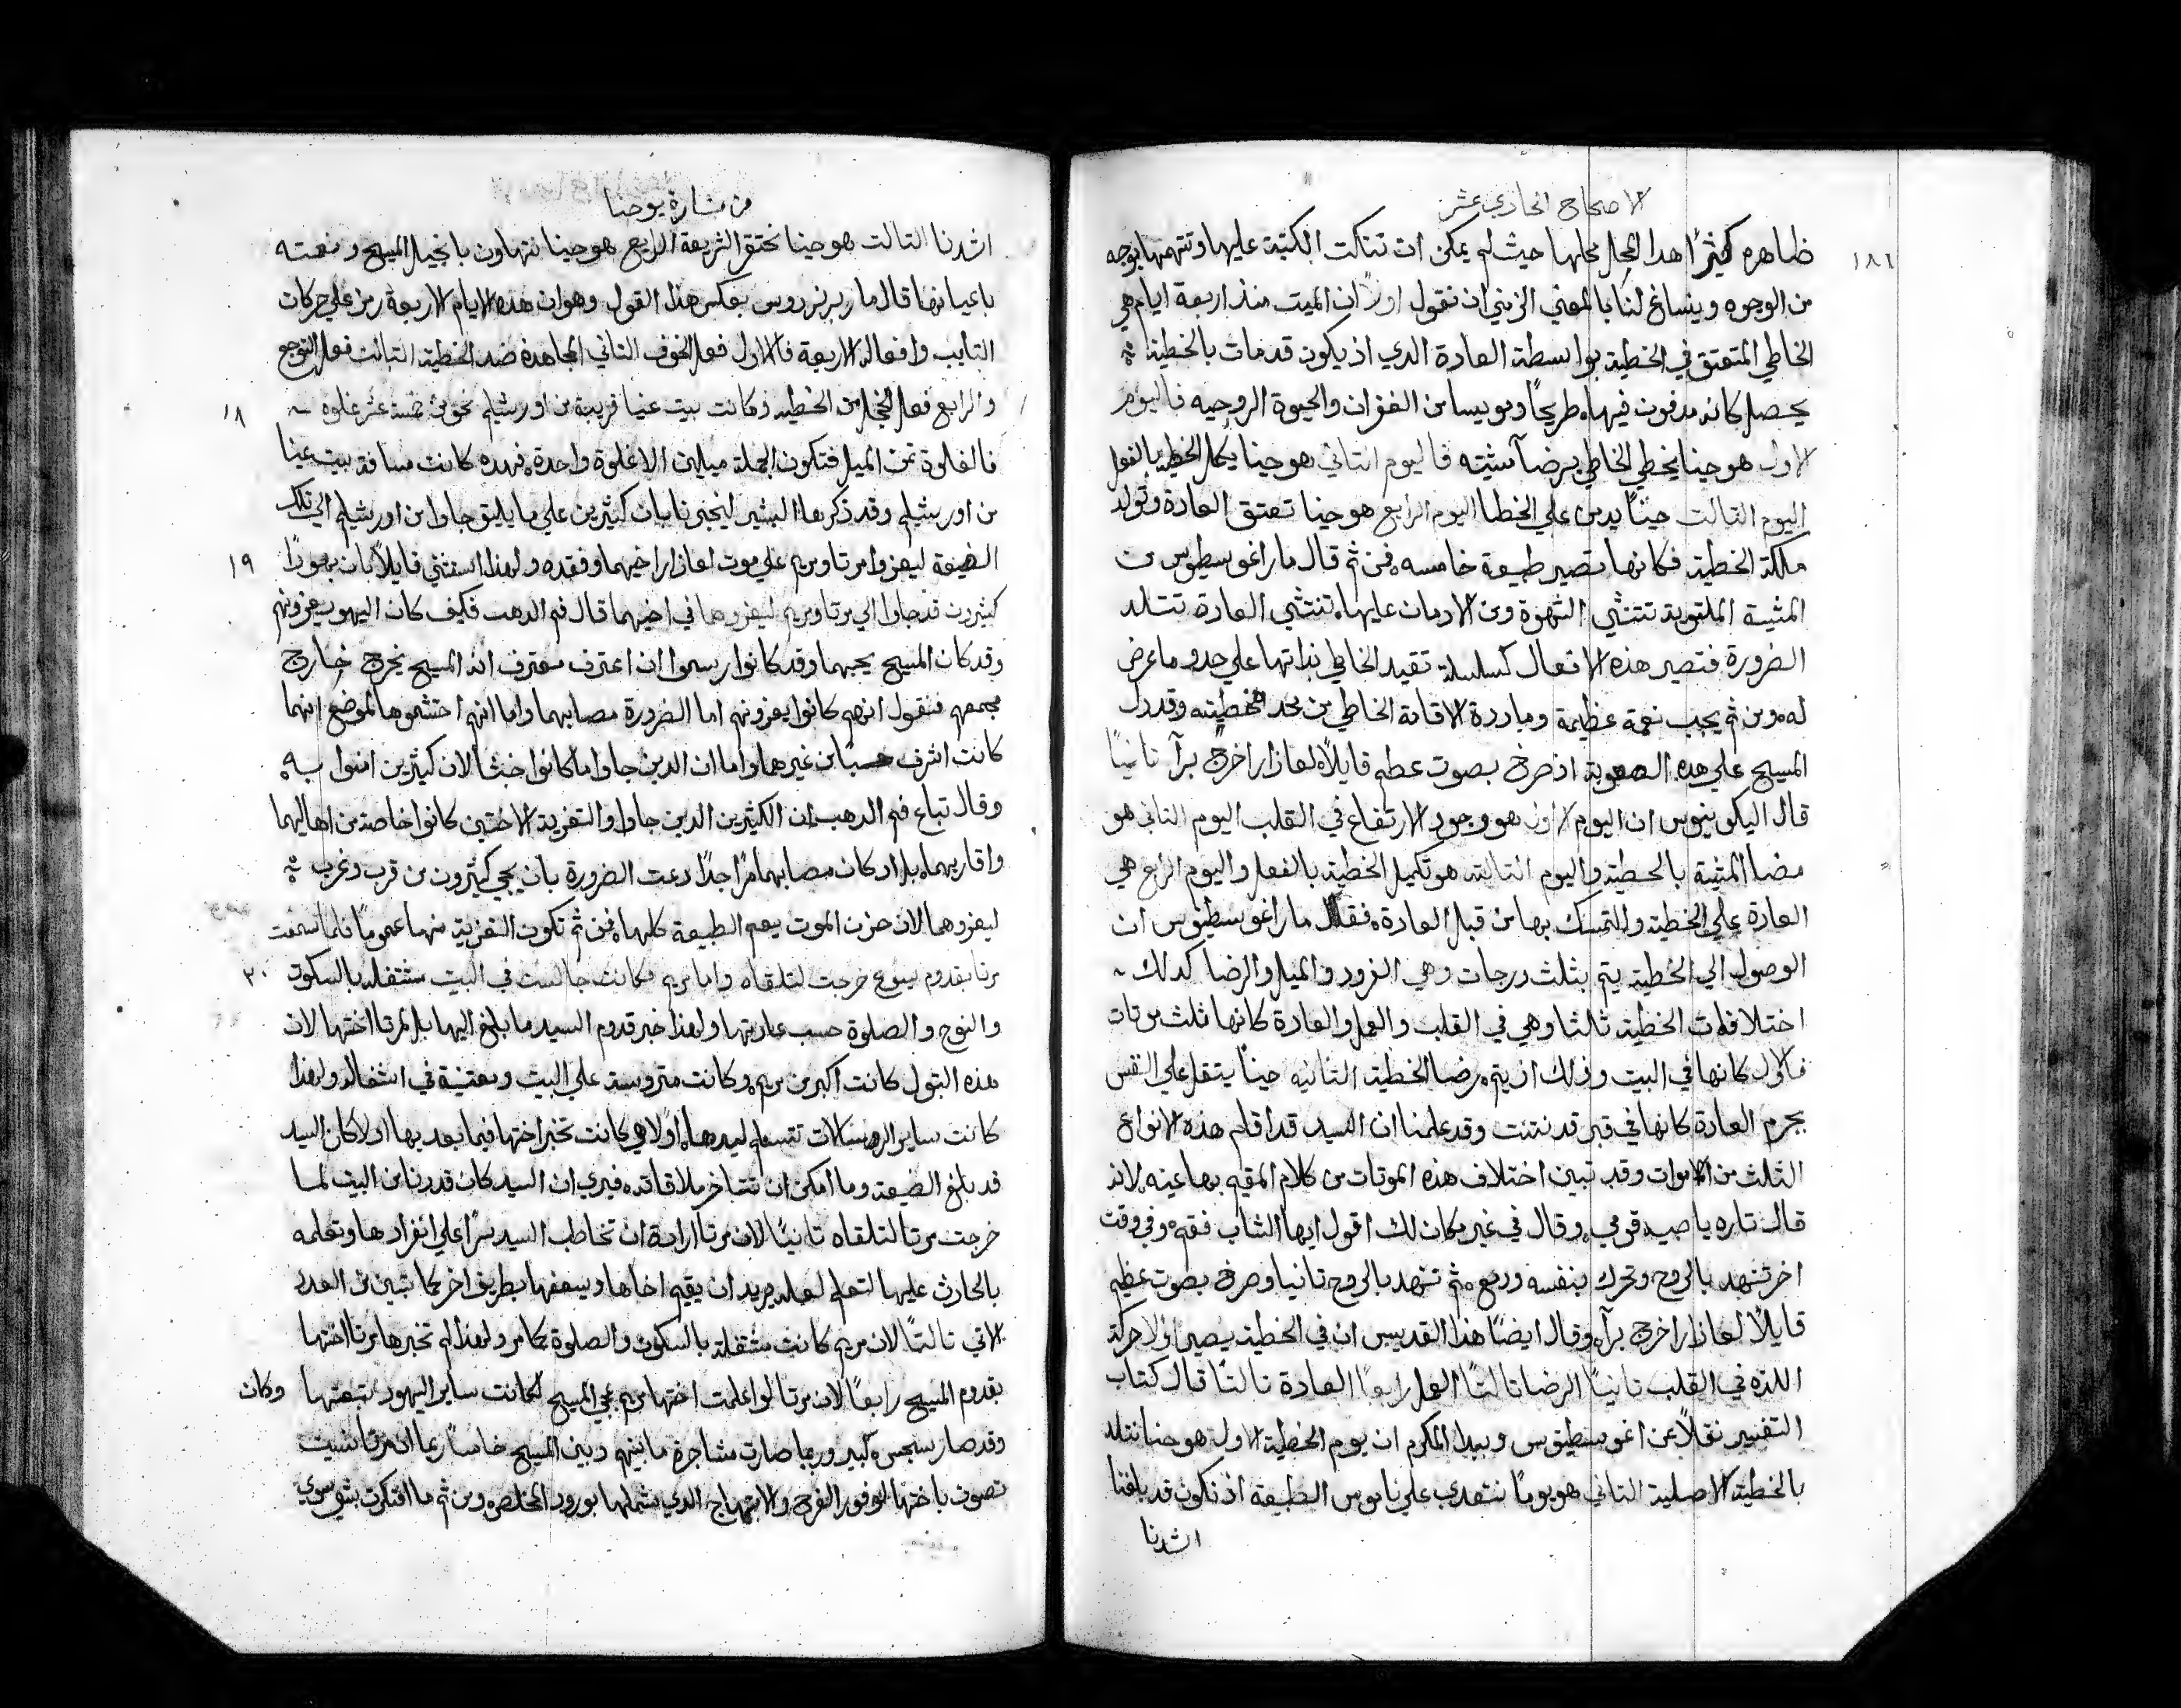 الاصحاح الحادي عشر
١٨٦
ظاهره كثيرًا هدا المجال محلها حيث لم يمكن ان تنكت الكتبة عليها وتتهمها بوجه
من الوجوه وينساغ لنا بالمعني الرمزي ان نقول اولًا ان الميت منذ اربعة ايام هي
الخاطي المتعتق في الخطية بواسطة العادة الدي اذ يكون قد مات بالخطية
يحصل كانه مدفون فيها طريحًا ومويسا من الغفران والحيوة الروحيه فاليوم
الاول هو حينا يخطي الخاطي برضا مشيته فاليوم التاني هو حينا يكمل الخطية بالفعل
اليوم التالت حينًا يدمن علي الخطا اليوم الرابع هو حينا تعتق العادة وتولد
ملكة الخطية فكانها تصير طبيعة خامسه فمن ثم قال مار اغوسطيوس من
المشية الملتوية تنتشي الشهوة ومن الادمان عليها تنتشي العادة تتلد
الضرورة فتصير هذه الافعال كسلسلة تقيد الخاطي بذاتها علي حدو ما عرض
له ومن ثم يجب نعمة عظيمة ومبادرة لاقامة الخاطي من لحد خطيته وقد دل
المسيح علي هده الصعوبة اذ صرخ بصوت عظم قايلًا لعازار اخرج برآ تانيًا
قال اليكوينوس ان اليوم الاول هو وجود الارتفاع في القلب اليوم التاني هو
مضا المشية بالخطية واليوم التالت هو تكميل الخطية بالفعل واليوم الرابع هي
العادة علي الخطية والتمسك بها من قبل العادة فقال مار اغوسطيوس ان
الوصول الي الخطية يتم بثلث درجات وهي الغرور والميل والرضا كدلك
اختلافات الخطية ثالثا وهي في القلب والعمل والعادة كانها ثلث موتات
فالاول كانها في البيت وذلك اذ يتم رضا الخطية التانيه حينًا يتقل علي النفس
بجرم العادة كانها في قبر قد نتنت وقد علمنا ان السيد قد اقام هذه الانواع
الثلث من الاموات وقد تبين اختلاف هذه الموتات من كلام المقيم بها عينه لانه
قال تاره يا صبيه قومي وقال في غير مكان لك اقول ايها الشاب فقم وفي وقت
اخر تنهد بالروح وتحرك بنفسه ودمع ثم تنهد بالروح تانيا وصرخ بصوت عظيم
قايلًا لعازار اخرج برآ وقال ايضًا هذا القديس ان في الخطية يصير اولا حركة
اللذه في القلب تانيًا الرضا تالتًا العمل رابعًا العادة تالتًا قال كتاب
التفسير نقلًا عن اغوسطيوس وبيدا المكرم ان يوم الخطية الاول هو حينا نتلد
بالخطية الاصلية التاني هو يومًا نتعدي علي ناموس الطبيعة اذ نكون قد بلغنا
اشدنا
من بشارة يوحنا
اشدنا التالت هو حينا نحتقر الشريعة الرابع هو حينا نتهاون بانجيل المسيح ونعمته
باعيانها قال مار برنردوس بعكس هذا القول وهو ان هذه الايام الاربعة رمز علي حركات
التايب وافعاله الاربعة فالاول فعل الخوف التاني المجاهدة ضد الخطية التالت فعل التوجع
والرابع فعل الخجل من الخطيه وكانت بيت عنيا قريبة من اورشليم نحو من خمسة عشر غلوه
١٨
فالغلوة تمن الميل فتكون الجملة ميلين الا غلوة واحدة فهده كانت مسافة بيت عنيا
من اورشليم وقد ذكرها البشير ليخبرنا بان كثيرين علي ما يليق جاوا من اورشليم الي تلك
الضيعة ليعزوا مرتا ومريم علي موت لعازار اخيهما وفقده ولهذا استتني قايلًا بان يهودًا
١٩
كثيرون قد جاوا الي مرتا ومريم ليعزوهما في اخيهما قال فم الدهب فكيف كان اليهود يعزونهم
وقد كان المسيح يحبهما وقد كانوا رسموا ان اعترف معترف انه المسيح يخرج خارج
مجمعهم فنقول انهم كانوا يعزونهم اما لضرورة مصابهما واما انهم احتشموهما لموضع انهما
كانت اشرف حسبًا من غيرهما واما ان الدين جاوا ما كانوا خبثا لان كثيرين امنوا به
وقال تباع فم الدهب ان الكثيرين الدين جاوا والتعزية الاختين كانوا خاصة من اهاليهما
واقاربهما بل اد كان مصابهما مرًا جدًا دعت الضرورة بان يجي كثيرون من قرب وغرب
ليعزوهما لان حزن الموت يعم الطبيعة كلها فمن ثم تكون التعزية منهما عمومًا فلما سمعت
مرتا بقدوم يسوع خرجت لتلقاه واما مريم فكانت جالست في البيت مشتغله بالسكوت
٢٠
والنوح والصلوة حسب عادتها ولهذا خبر قدوم السيد ما بلغ اليها بل لمرتا اختها لان
هذه البتول كانت اكبر من مريم وكانت متروسة علي البيت ومعتنية في اشغاله ولهذا
كانت ساير الرسالات تتسلم ليدها اولا وهي كانت تخبر اختها فيما بعد بها اولا كان السيد
قد بلغ الضيعة وما امكن ان تتاخر ملاقاته فيري ان السيد كان قد دنا من البيت لما
خرجت مرتا لتلقاه تانيًا لان مرتا ارادة ان تخاطب السيد سرًا علي انفرادها وتعلمه
بالحادث عليها لتعلم لعله يريد ان يقيم اخاها ويسعفها بطريق اخر كما تبين من العدد
الاتي تالتًا لان مريم كانت مشتغلة بالسكون والصلوة كما مر ولهذا لم تخبرها مرتا اختها
بقدوم المسيح رابعًا لان مرتا لو اعلمت اختها مريم بمجي المسيح لكانت ساير اليهود تتبعتها وكان
وقد صار سجس كبير وربما صارت مشاجرة ما بينهم وبين المسيح خامسًا ربما ان مرتا نسيت
تصوت باختها لوفور الفرح والابتهاج الدي شملها بورود المخلص ومن ثم ما افتكرت بشي سوي